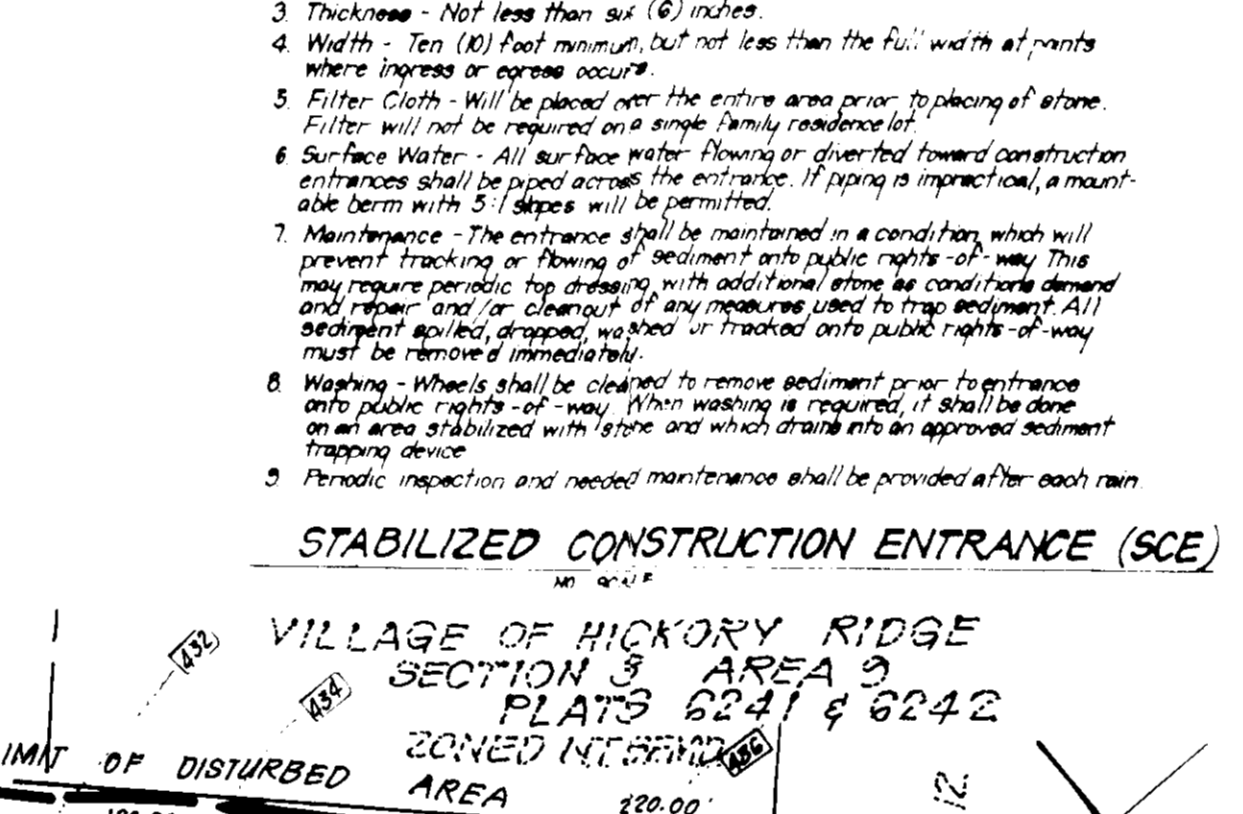 3. Thickness - Not less than six (6) inches.
4. Width - Ten (10) foot minimum, but not less than the full width at points
where ingress or egress occurs.
5. Filter Cloth - Will be placed over the entire area prior to placing of stone.
Filter will not be required on a single family residence lot.
6. Surface Water - All surface water flowing or diverted toward construction
entrances shall be piped across the entrance. If piping is impractical, a mount-
able berm with 5:1 slopes will be permitted.
7. Maintenance - The entrance shall be maintained in a condition which will
prevent tracking or flowing of sediment onto public rights-of-way This
may require periodic top dressing with additional stone as conditions demand
and repair and/or cleanout of any measures used to trap sediment. All
sediment spilled, dropped, washed or tracked onto public rights-of-way
must be removed immediately.
8. Washing - Wheels shall be cleaned to remove sediment prior to entrance
onto public rights-of-way. When washing is required, it shall be done
on an area stabilized with stone and which drains into an approved sediment
trapping device
9. Periodic inspection and needed maintenance shall be provided after each rain.
STABILIZED CONSTRUCTION ENTRANCE (SCE)
NO SCALE
VILLAGE OF HICKORY RIDGE
432
SECTION 3 AREA 9
434
PLATS 6241 & 6242
ZONED
436
IMIT OF DISTURBED AREA
220.00'
12